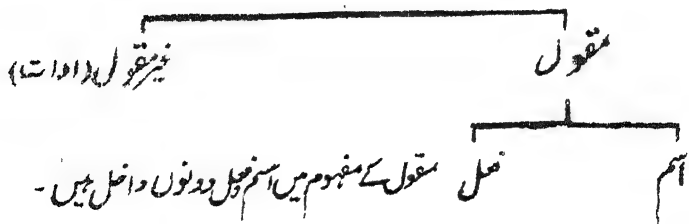 مقول غیر مقول (ادات)
اسم فعل مقول کے مفہوم میں اسم فعل دونوں داخل ہیں۔